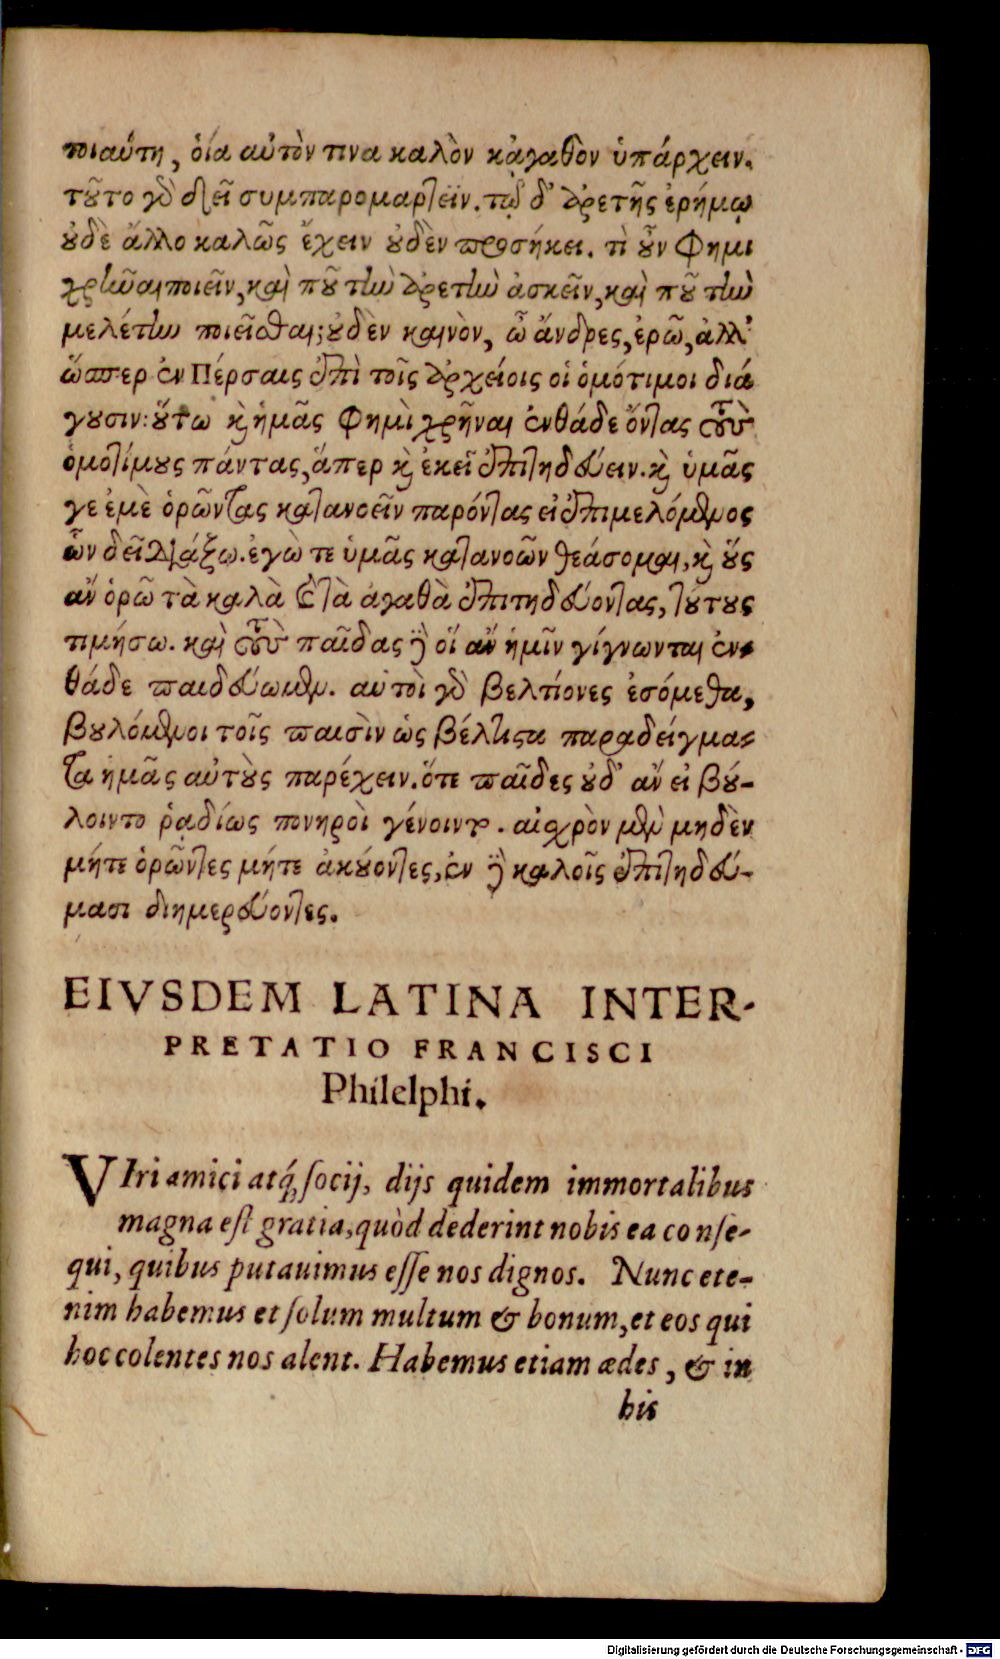 τοιαύτη, οἵα αὐτόν τινα καλὸν κἀγαθὸν ὑπάρχειν.
τοῦτο γὸ δεῖ συμπαρομαρτεῖν. τῷ δ' ἀρετῆς ἐρήμῳ
οὐδὲ ἄλλο καλῶς ἔχειν οὐδὲν προσήκει. τὶ οὖν φημι
χρῆναι ποιεῖν, καὶ ποῦ τὴν ἀρετὴν ἀσκεῖν, καὶ ποῦ τὴν
μελέτην ποιεῖσθαι; οὐδὲν καινὸν, ὦ ἄνδρες, ἐρῶ, ἀλλ'
ὥσπερ ἐν Πέρσαις ἐπὶ τοῖς ἀρχείοις οἱ ὁμότιμοι διά
γουσιν: οὕτω καὶ ἡμᾶς φημὶ χρῆναι ἐνθάδε ὄντας τοὺς
ὁμοτίμους πάντας, ἅπερ καὶ ἐκεῖ ἐπιτηδεύειν. καὶ ὑμᾶς
γε ἐμὲ ὁρῶντας κατανοεῖν παρόντας εἰ ἐπιμελόμενος
ὧν δεῖ διάξω. ἐγώ τε ὑμᾶς κατανοῶν θεάσομαι, καὶ οὓς
ἂν ὁρῶ τὰ καλὰ καὶ τὰ ἀγαθὰ ἐπιτηδεύοντας, τούτους
τιμήσω. καὶ τοὺς παῖδας δὲ οἵ ἂν ἡμῖν γίγνωνται ἐν-
θάδε παιδεύωμεν. αὐτοὶ γὸ βελτίονες ἐσόμεθα,
βουλόμενοι τοῖς παισὶν ὡς βέλτιστα παραδείγμα-
τα ἡμᾶς αὐτοὺς παρέχειν. ὅτε παῖδες οὐδ' ἂν εἰ βού-
λοιντο ῥαδίως πονηροὶ γένοιντο. αἰσχρὸν μὲν μηδὲν
μήτε ὁρῶντες μήτε ἀκούοντες, ἐν δὲ καλοῖς ἐπιτηδεύ-
μασι διημερεύοντες.
EIVSDEM LATINA INTER-
PRETATIO FRANCISCI
Philelphi.
VIri amici atq́; socij, dijs quidem immortalibus
magna est gratia, quòd dederint nobis ea conse-
qui, quibus putauimus esse nos dignos. Nunc ete-
nim habemus et solum multum & bonum, et eos qui
hoc colentes nos alent. Habemus etiam ædes, & in
his
Digitalisierung gefördert durch die Deutsche Forschungsgemeinschaft - DFG